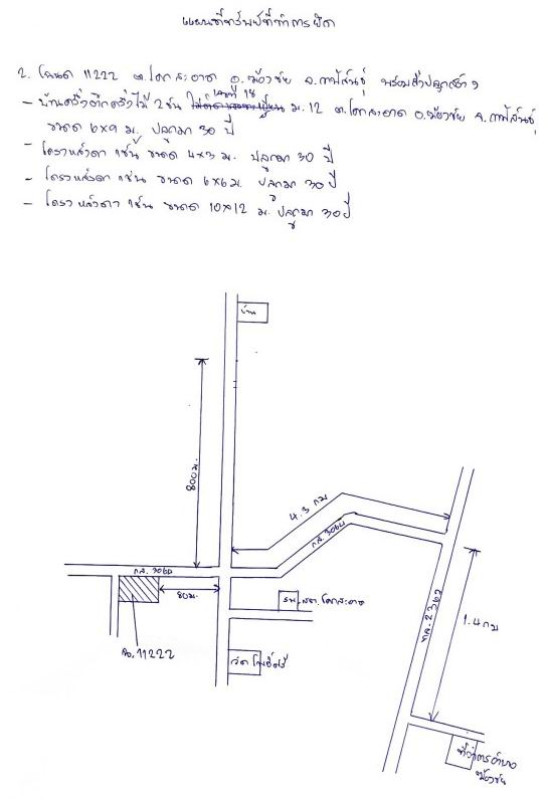 แผนที่ทรัพย์ที่ทำการยึด
2. โฉนด 11222 ต.โคกสะอาด อ.ฆ้องชัย จ.กาฬสินธุ์ พร้อมสิ่งปลูกสร้าง
- บ้านครึ่งตึกครึ่งไม้ 2 ชั้น เลขที่ 18 ม.12 ต.โคกสะอาด อ.ฆ้องชัย จ.กาฬสินธุ์
ขนาด 6x9 ม. ปลูกมา 30 ปี
- โครงหลังคา 1 ชั้น ขนาด 4x3 ม. ปลูกมา 30 ปี
- โครงหลังคา 1 ชั้น ขนาด 6x6 ม. ปลูกมา 30 ปี
- โครงหลังคา 1 ชั้น ขนาด 10x12 ม. ปลูกมา 30 ปี
บ้าน
800 ม.
4.3 กม
กส. 3064
กส. 3064
80 ม.
รพ.สต.โคกสะอาด
ทล. 2367
1.4 กม
ฉ. 11222
วัดโพธิ์ศรี
ที่ว่าการอำเภอ
ฆ้องชัย